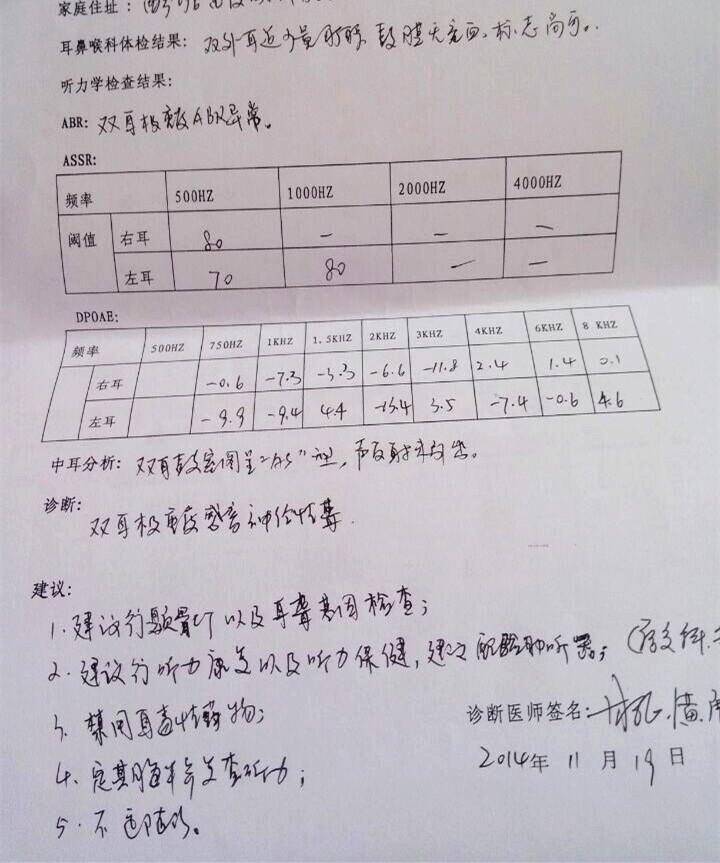 家庭住址:
耳鼻喉科体检结果: 双外耳道少量耵聍 鼓膜无充血、标志尚可。
听力学检查结果:
ABR: 双耳极重度ABR异常。
ASSR:
频率 500HZ 1000HZ 2000HZ 4000HZ
阈值 右耳 80 — — —
左耳 70 80 — —
DPOAE:
频率 500HZ 750HZ 1KHZ 1.5KHZ 2KHZ 3KHZ 4KHZ 6KHZ 8 KHZ
右耳 -0.6 -7.3 -3.3 -6.6 -11.8 2.4 1.4 0.1
左耳 -9.9 -9.4 4.4 -13.4 3.5 -7.4 -0.6 4.6
中耳分析: 双耳鼓室图呈"As"型, 声反射未引出。
诊断:
双耳极重度感音神经性聋.
建议:
1. 建议行颞骨CT以及耳聋基因检查;
2. 建议行听力康复以及听力保健, 建议配戴助听器;
3. 禁用耳毒性药物;
诊断医师签名:
4. 定期随半年复查听力;
2014年 11 月 19 日
5. 不适随诊。